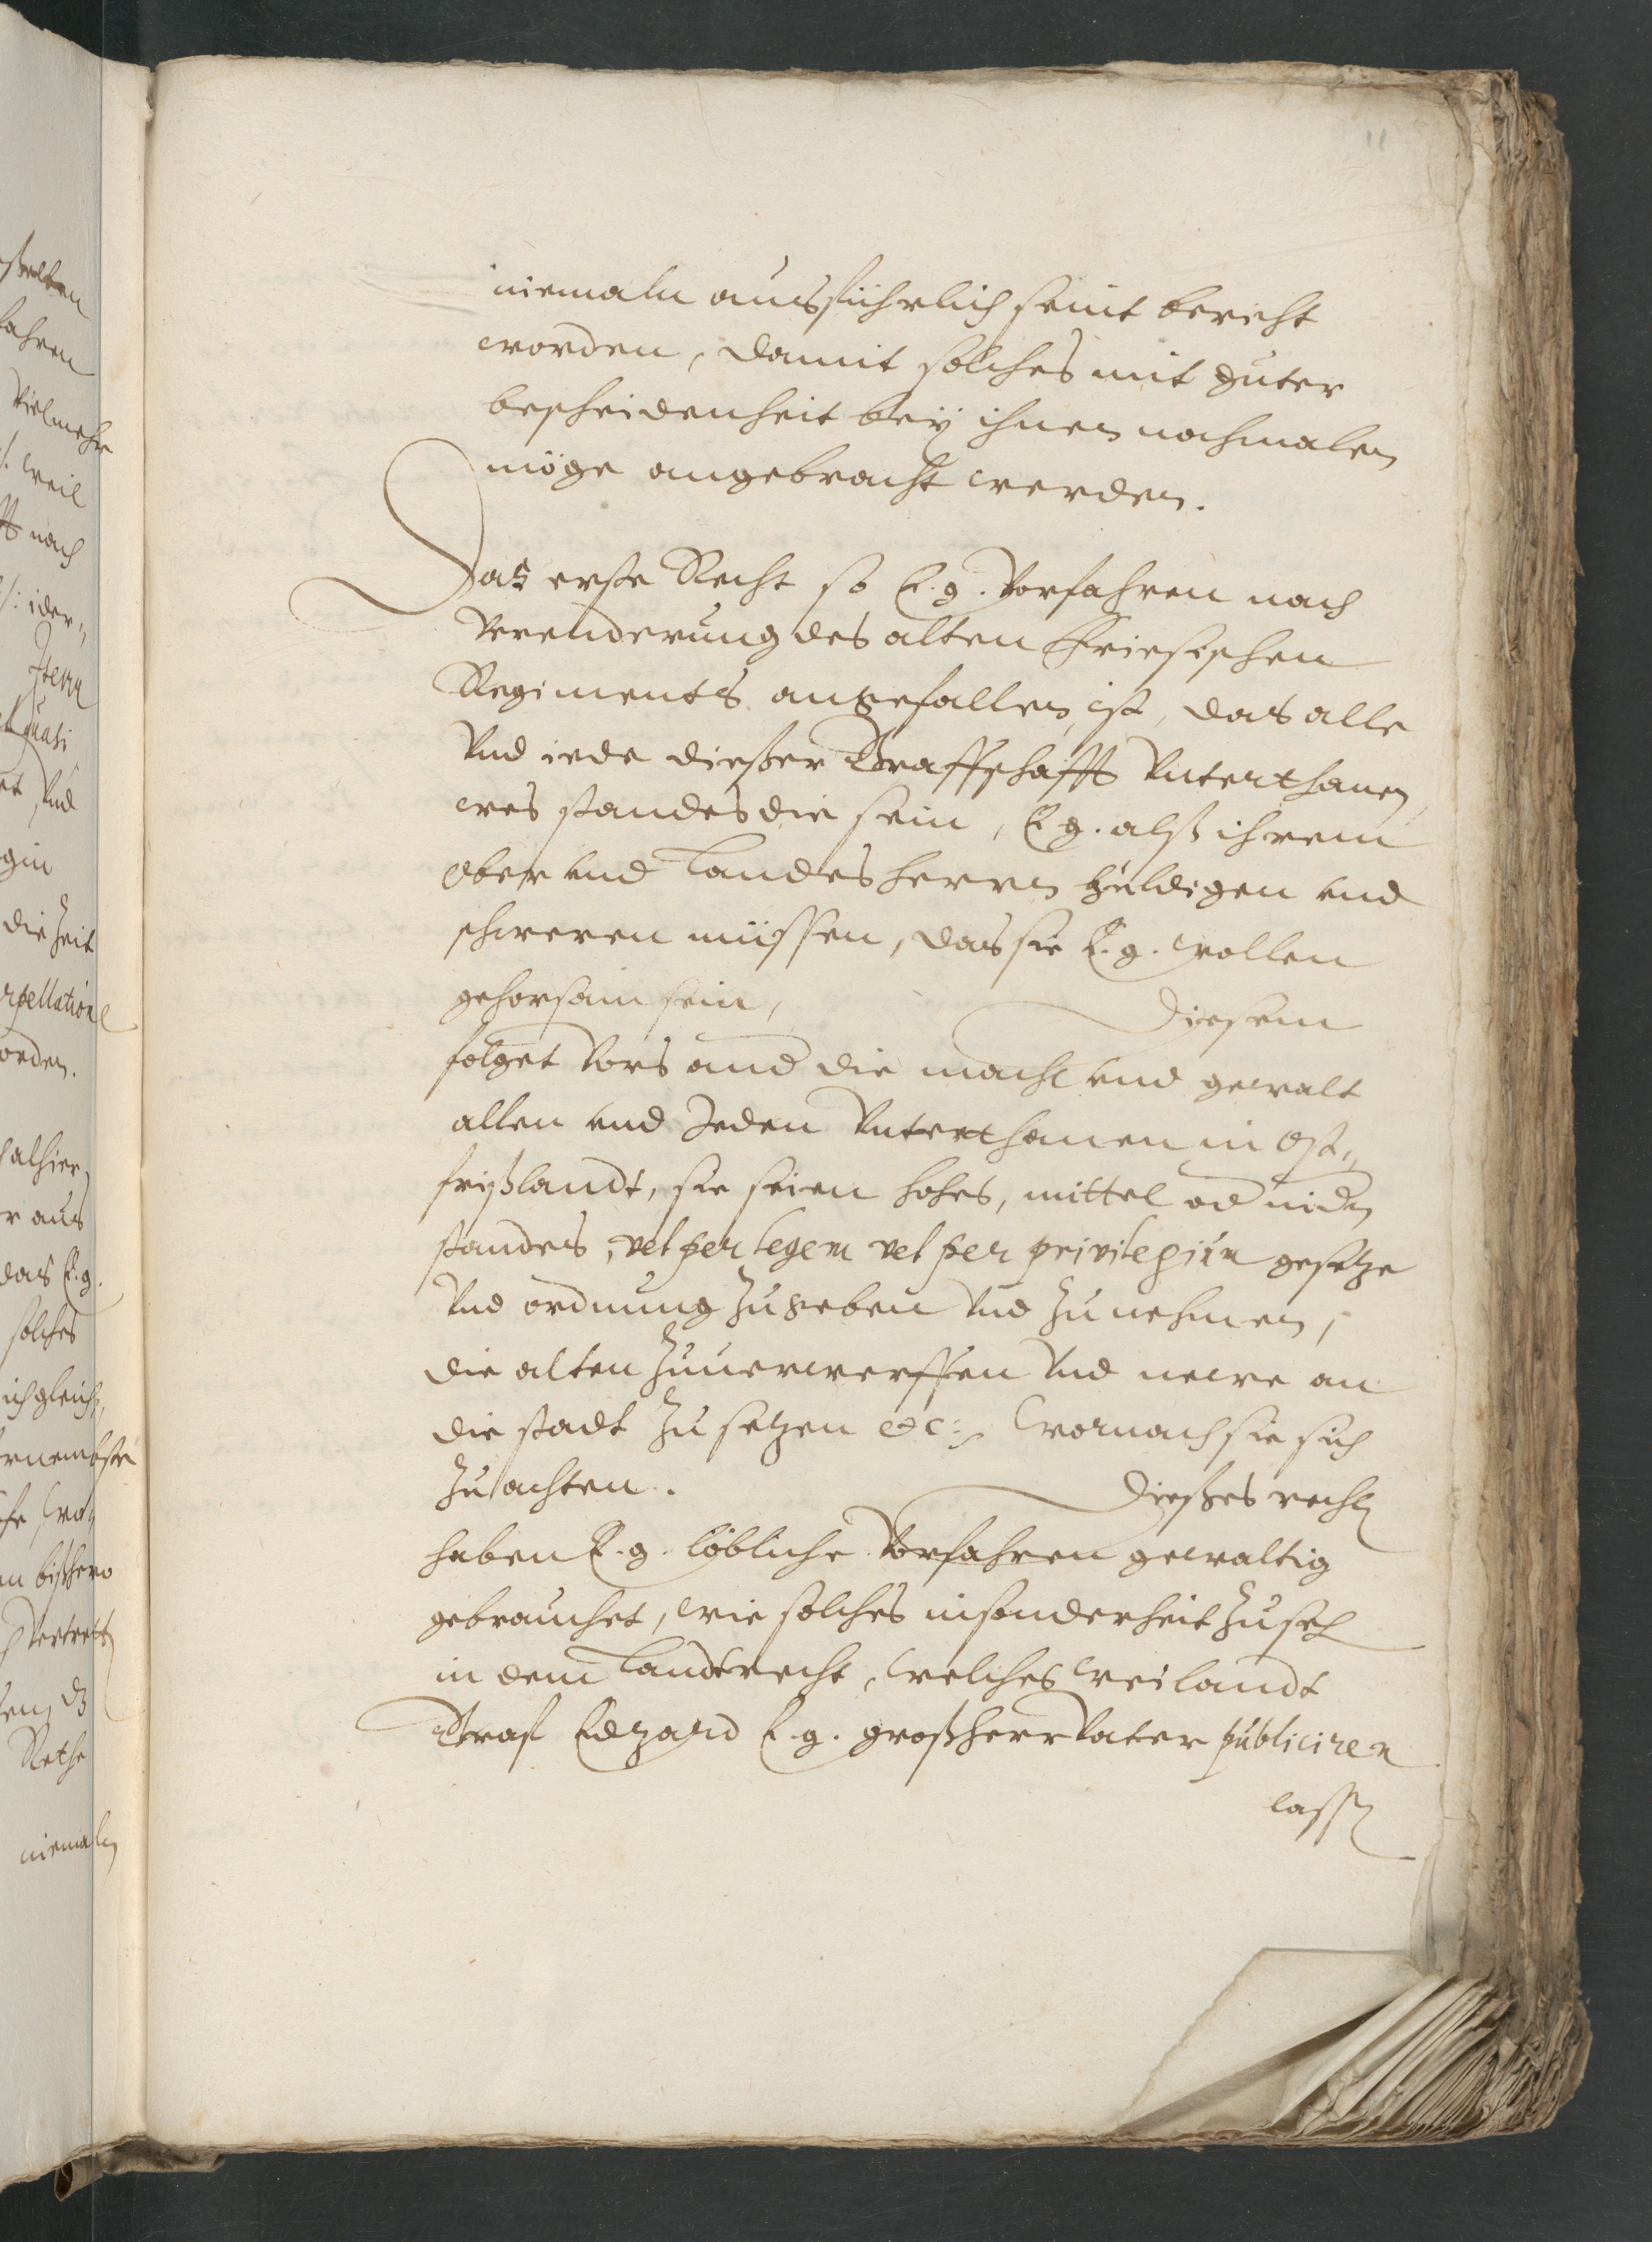 11
niemaln ausführlich seint bericht
worden, damit solches mit guter
bescheidenheit bey ihnen nochmalen
möge angebracht werden.
Das erste Recht so E. g. Vorfahren nach
Verenderung des alten Friesischen
Regiments angefallen ist, das alle
Vnd iede dießer Graffschafft Vnterthanen
wes standes die sein, E g. alß ihrem
Ober vnd Landesherren huldigen vnd
schweren müssen, das sie E. g. wollen
gehorsam sein, Diesem
folget Vors and die macht vnd gewalt
allen vnd Jeden Vnterthanen in Ost„
frißlandt, sie seien hohes, mittel od nidn
standes, vel per legem vel per privilegium gesetze
Vnd ordnung zu geben Vnd zu nehmen,
die alten zuuerwerffen Vnd newe an
die stadt zu setzen etc: wornach sie sich
zu achten. Dießes recht
haben E. g. löbliche Vorfahren gewaltig
gebrauchet, wie solches insonderheit zu seh
in dem Landtrecht, welches weilandt
Graf Edzard E. g. großherr Vater publiciren
lassen